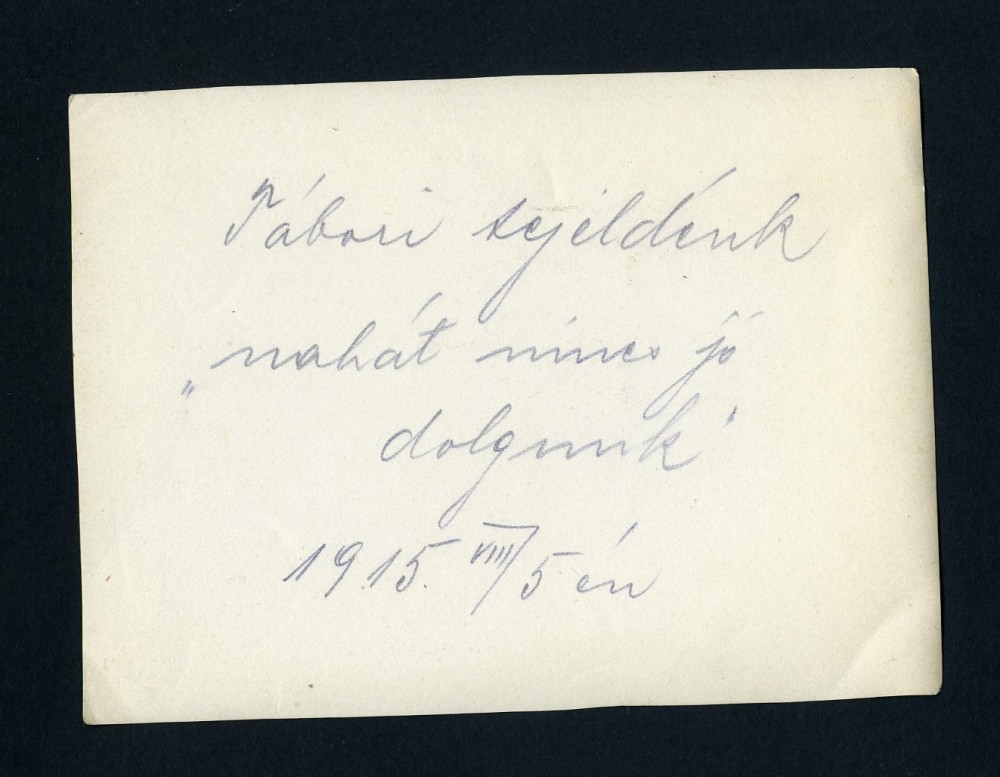 Tábori tejeldénk
„nahát nincs jó
dolgunk"
1915. VIII/5 én